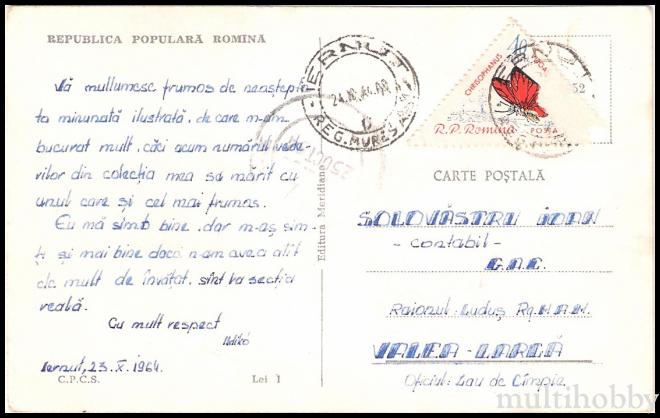 REPUBLICA POPULARĂ ROMINĂ
Vă mulțumesc frumos de neaștep-
ta minunată ilustrată. de care m-am
bucurat mult. căci acum numărul vede-
rilor din colecția mea sa mărit cu
unul care și cel mai frumos.
Eu mă simt bine. dar m-aș sim-
ți și mai bine dacă n-am avea atît
de mult de învățat. sînt la secția
reală.
Cu mult respect
Ildikó
Iernut, 23. X. 1964.
C.P.C.S.
Lei 1
Editura Meridiane
IERNUT
REG. MUREȘ
CHRSOPHANUS
40
R.P. Romina
POSTA
52
25 OCT
CARTE POȘTALĂ
SOLOVĂSTRU IOAN
- contabil -
G.A.C.
Raionul Luduș Rg. M.A.M.
VALEA LARGĂ
Oficiul: Sau de Cîmpie
multihobby